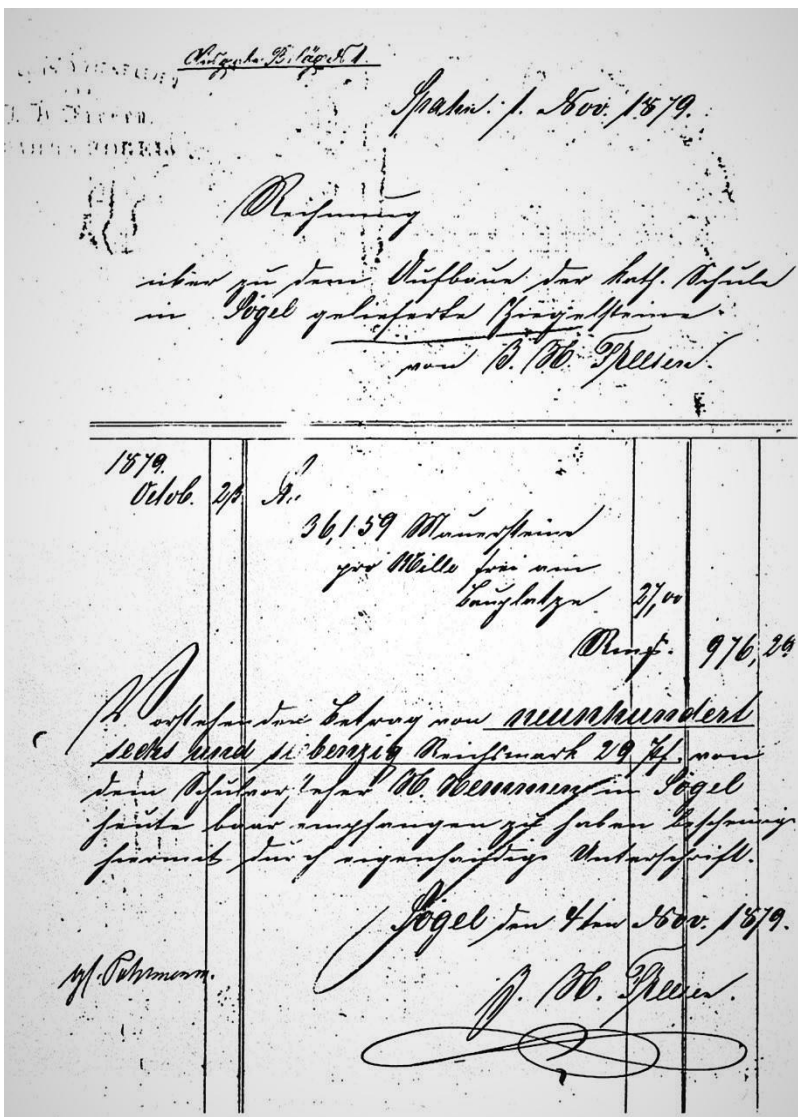 Ausgabe Beläg No 1.
Spahn. 1. Nov. 1879.
Rechnung
über zu dem Aufbaue der kath. Schule
in Sögel gelieferte Ziegelsteine
von B. H. Theesen.
1879.
Octob. 23 An
36,159 Mauersteine
pro Mille frei am
Bauplatze 27,00
Rmf. 976,29
Vorstehenden Betrag von neunhundert
sechs und siebenzig Reichsmark 29 Pf. von
dem Schulvorsteher H. Hemmen in Sögel
heute baar empfangen zu haben bescheinige
hiermit durch eigenhändige Unterschrift.
Sögel den 4ten Nov. 1879.
B. H. Theesen.